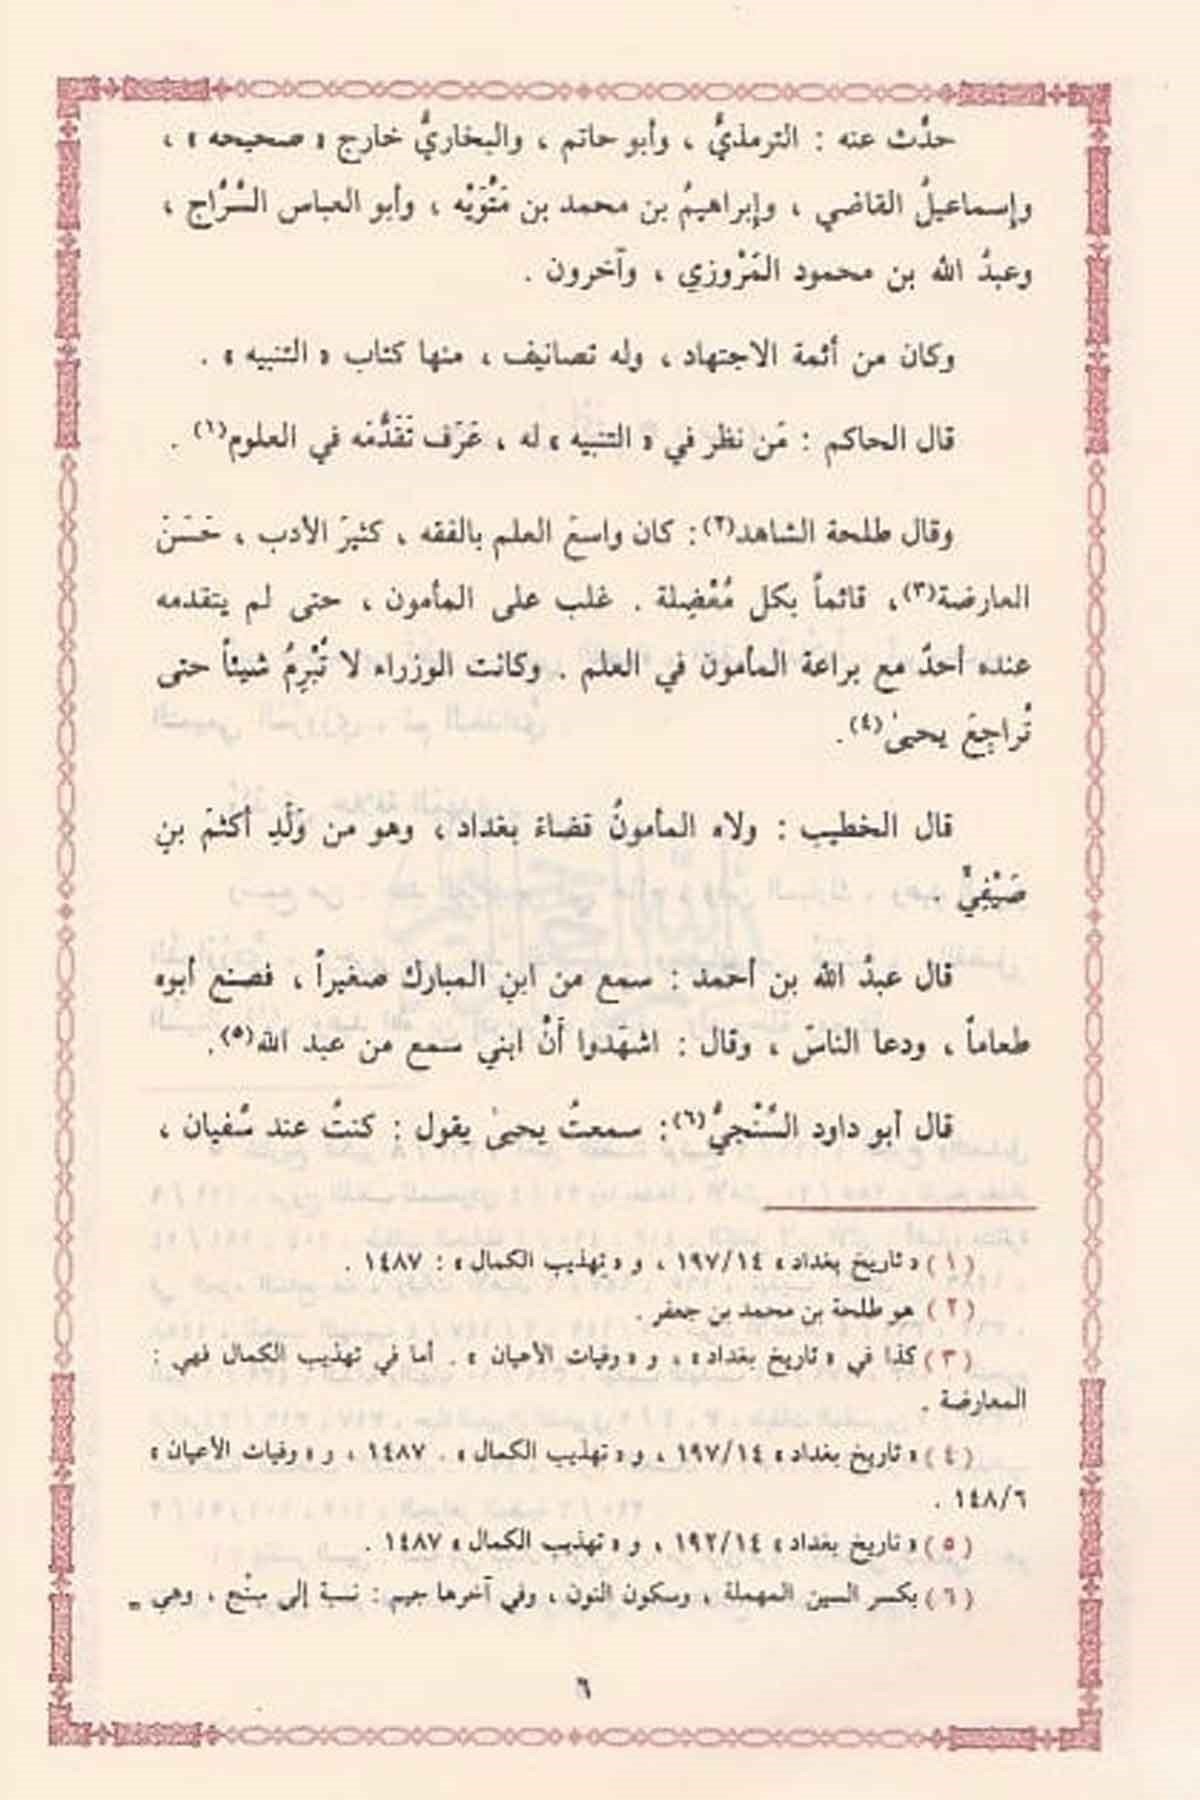 حدَّث عنه : الترمذيُّ ، وأبو حاتم ، والبخاريُّ خارج « صحيحه » ،
وإسماعيلُ القاضي ، وإبراهيمُ بن محمد بن مَتُّوَيْه ، وأبو العباس السَّرَّاج ،
وعبدُ الله بن محمود المَرْوزي ، وآخرون .
وكان من أئمة الاجتهاد ، وله تصانيف ، منها كتاب « التنبيه » .
قال الحاكم : مَن نظر في « التنبيه » له ، عَرَف تَقَدُّمَه في العلوم(١) .
وقال طلحة الشاهد(٢): كان واسعَ العلم بالفقه ، كثيرَ الأدب ، حَسَنَ
العارضة(٣)، قائماً بكل مُعْضِلة . غلب على المأمون ، حتى لم يتقدمه
عنده أحدٌ مع براعة المأمون في العلم . وكانت الوزراء لا تُبْرِمُ شيئاً حتى
تُراجِعَ يحيىٰ(٤).
قال الخطيب : ولاه المأمونُ قضاءَ بغداد ، وهو من وَلَدِ أكثمَ بنِ
صَيْفِيٍّ .
قال عبدُ الله بن أحمد : سمع من ابنِ المبارك صغيراً ، فصنع أبوه
طعاماً ، ودعا الناسَ ، وقال : اشهَدوا أَنَّ ابني سمع من عبد الله(٥).
قال أبو داود السِّنْجيُّ(٦): سمعتُ يحيىٰ يقول : كنتُ عند سُفيان ،
(١) « تاريخ بغداد » ١٩٧/١٤ ، و « تهذيب الكمال » : ١٤٨٧ .
(٢) هو طلحة بن محمد بن جعفر .
(٣) كذا في « تاريخ بغداد » ، و « وفيات الأعيان » . أما في تهذيب الكمال فهي :
المعارضة .
(٤) « تاريخ بغداد » ١٩٧/١٤ ، و « تهذيب الكمال » . ١٤٨٧ ، و « وفيات الأعيان »
١٤٨/٦ .
(٥) « تاريخ بغداد » ١٩٢/١٤ ، و « تهذيب الكمال » ١٤٨٧ .
(٦) بكسر السين المهملة ، وسكون النون ، وفي آخرها جيم : نسبة إلى سِنْج ، وهي =
٦